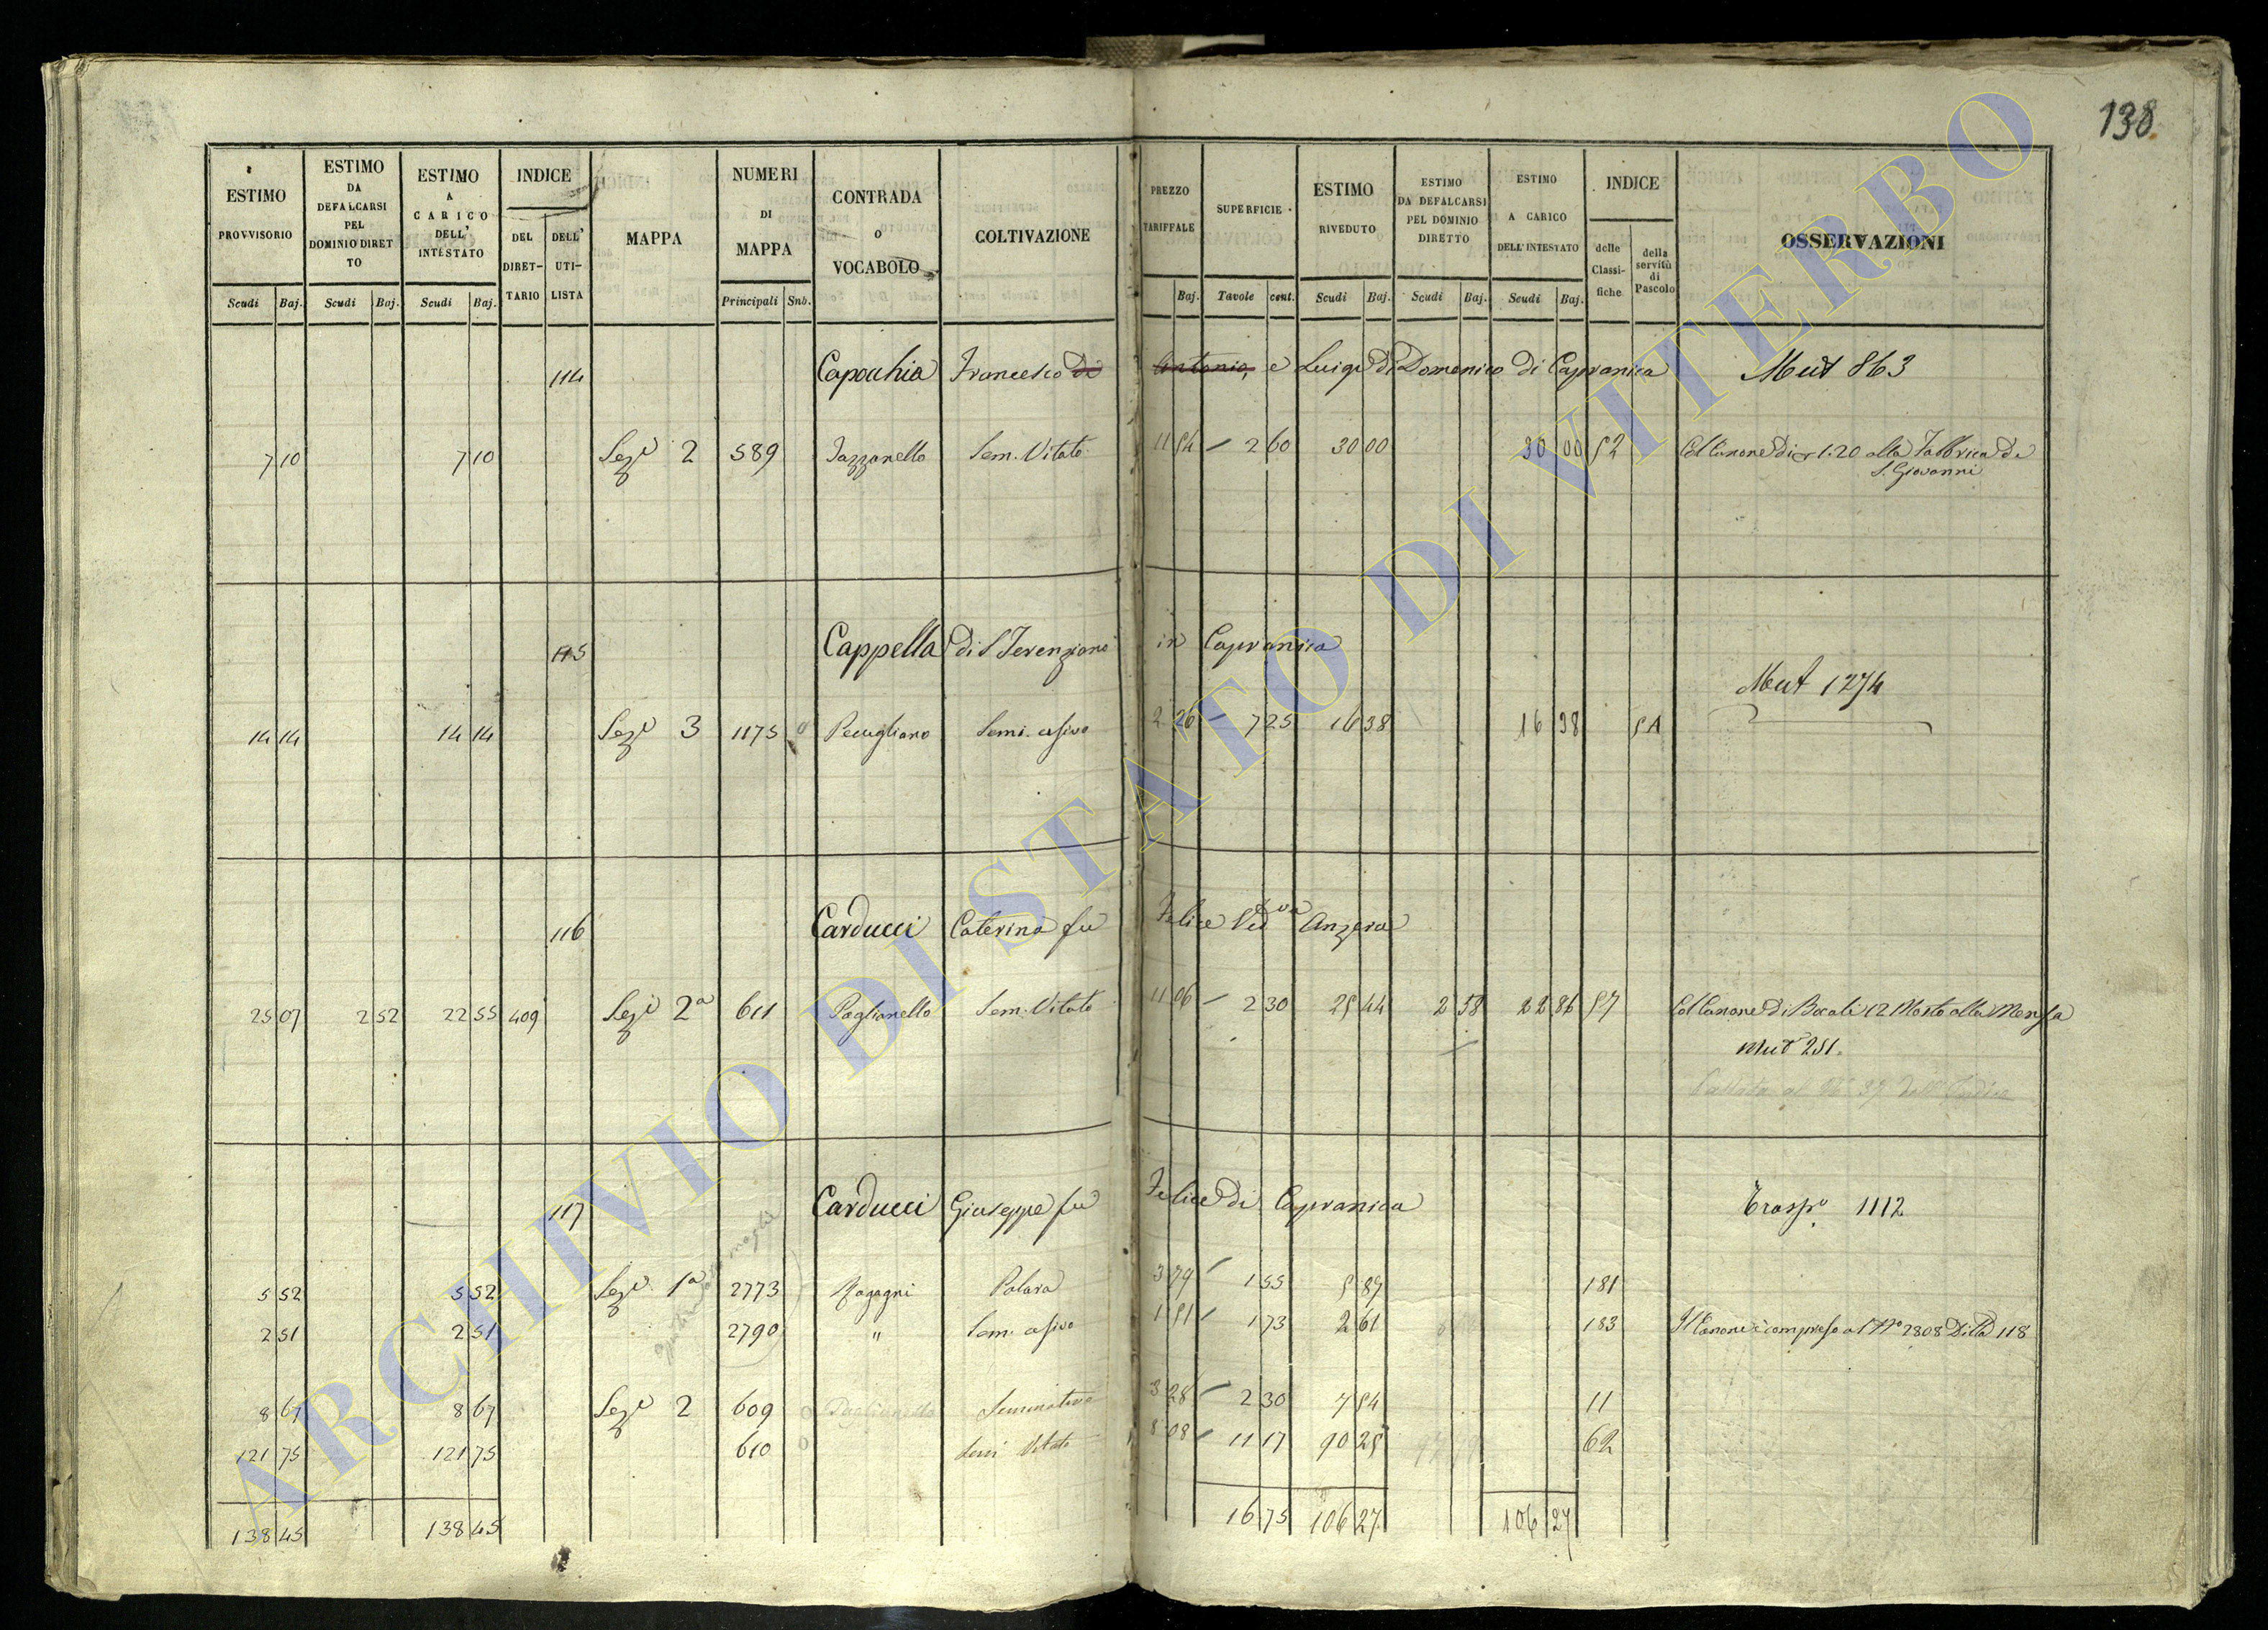 138
ESTIMO PROVVISORIO
ESTIMO DA DEFALCARSI PEL DOMINIO DIRETTO
ESTIMO A CARICO DELL' INTESTATO
INDICE
DEL DIRETTARIO
DELL' UTILISTA
MAPPA
NUMERI DI MAPPA
CONTRADA o VOCABOLO
COLTIVAZIONE
PREZZO TARIFFALE
SUPERFICIE
ESTIMO RIVEDUTO
ESTIMO DA DEFALCARSI PEL DOMINIO DIRETTO
ESTIMO A CARICO DELL'INTESTATO
INDICE
delle Classifiche
della servitù di Pascolo
OSSERVAZIONI
Scudi Baj. Scudi Baj. Scudi Baj. Principali Sub. Baj. Tavole cent. Scudi Baj. Scudi Baj. Scudi Baj.
114 Capocchia Francesco di Antonio, e Luigi di Domenico di Capranica Mut 863
7 10 7 10 Sezе 2 589 Sem. Vitato 11 54 2 60 30 00 30 00 52 Col Canone di 1.20 alla Fabbrica di
S. Giovanni
115 Cappella di S Terenziano in Capranica
Mut 1274
14 14 14 14 Seze 3 1175 0 Pecugliano Semi. asivo 2 26 7 25 16 38 16 38 5A
116 Carducci Caterina fu Felice Vedva Anzera
25 07 2 52 22 55 409 Seze 2a 611 Paglianello Sem. Vitato 11 06 2 30 25 44 2 58 22 86 57 Col Canone di Bocali 12 Mosto alla Mensa
Mut 251.
117 Carducci Giuseppe fu Felice di Capranica Traspo 1112
5 52 5 52 Seze 1a 2773 Magagni 3 79 1 55 5 87 181
2 51 2 51 2790 " Sem. asivo 1 51 1 73 2 61 183 Il Canone è compreso al No 2808 Ditta 118
8 67 8 67 Seze 2 609 0 Paglianello Seminativo 3 28 2 30 7 54 11
121 75 121 75 610 0 Semi Vitato 8 08 11 17 90 25 62
138 45 138 45 16 75 106 27 106 27
ARCHIVIO DI STATO DI VITERBO